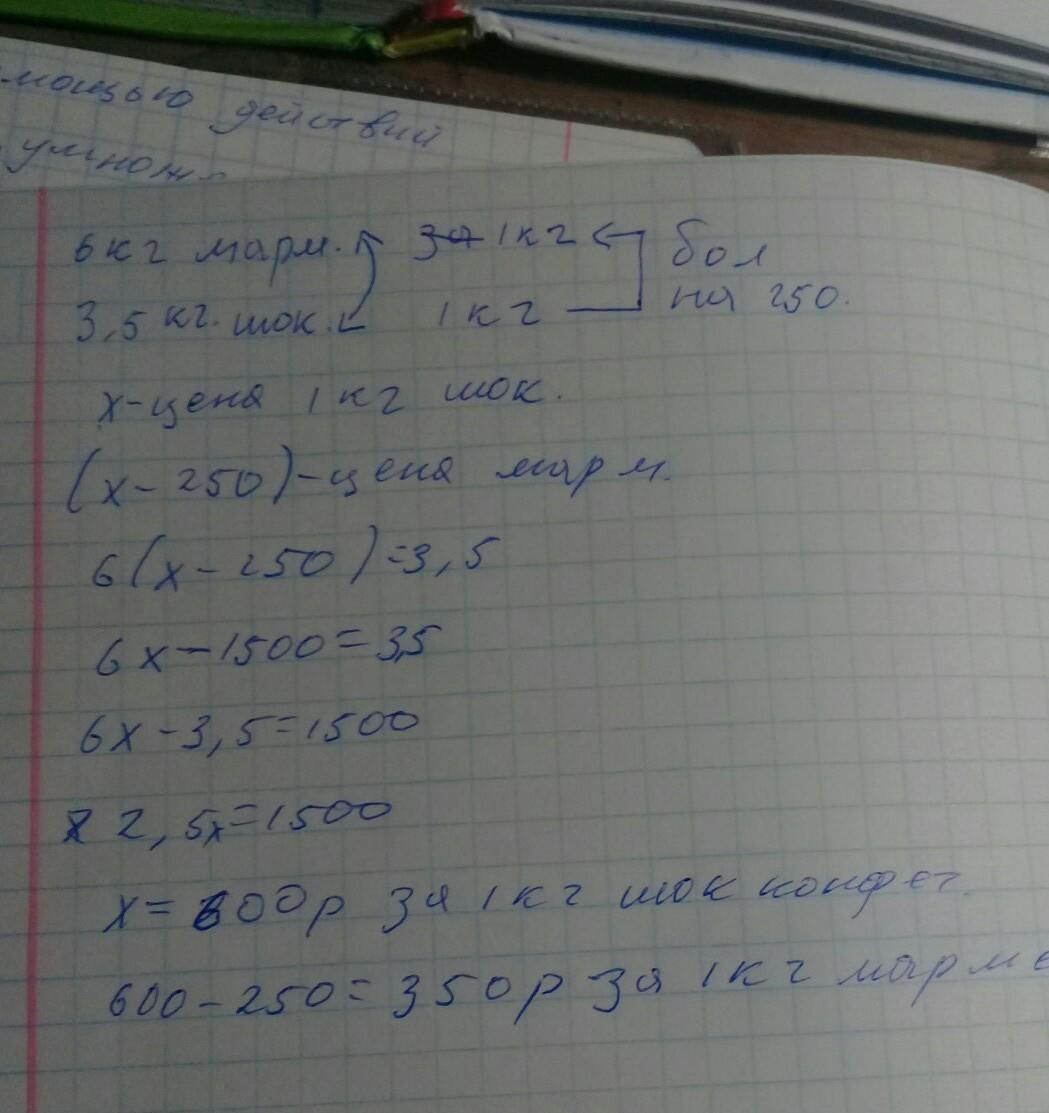 мощью действий
умнож
6 кг марм. за 1кг бол
3,5 кг. шок. 1кг на 250.
х-цена 1 кг шок.
(х-250)-цена марм.
6(х-250)=3,5
6х-1500=3,5
6х-3,5=1500
2,5х=1500
х=600р за 1кг шок конфет.
600-250=350р за 1кг марме